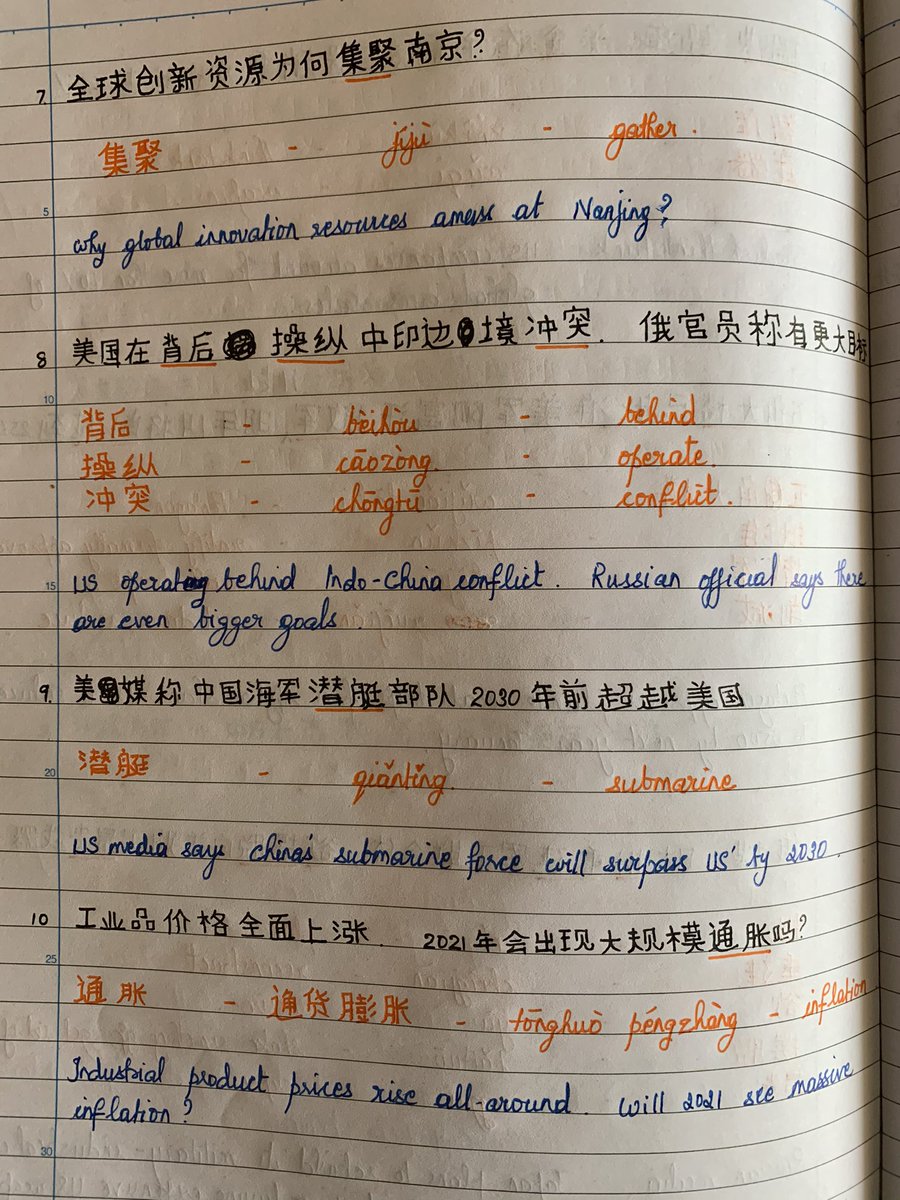 7 全球创新资源为何集聚南京?
集聚 - jíjù - gather.
5
why global innovation resources amass at Nanjing?
8 美国在背后 操纵中印边 境冲突. 俄官员称有更大目标
10
背后 - bèihòu - behind
操纵 - cāozòng. - operate.
冲突 - chōngtū - conflict.
15 US operating behind Indo-China conflict. Russian official says there
are even bigger goals.
9. 美 媒称中国海军潜艇部队 2030年前超越美国
20 潜艇 - qiántǐng. - submarine
US media says China's submarine force will surpass US' by 2030.
10 工业品价格全面上涨. 2021年会出现大规模通胀吗?
25
通胀 - 通货膨胀 - tōnghuò péngzhàng - inflation
Industrial product prices rise all-around. Will 2021 see massive
inflation?
30